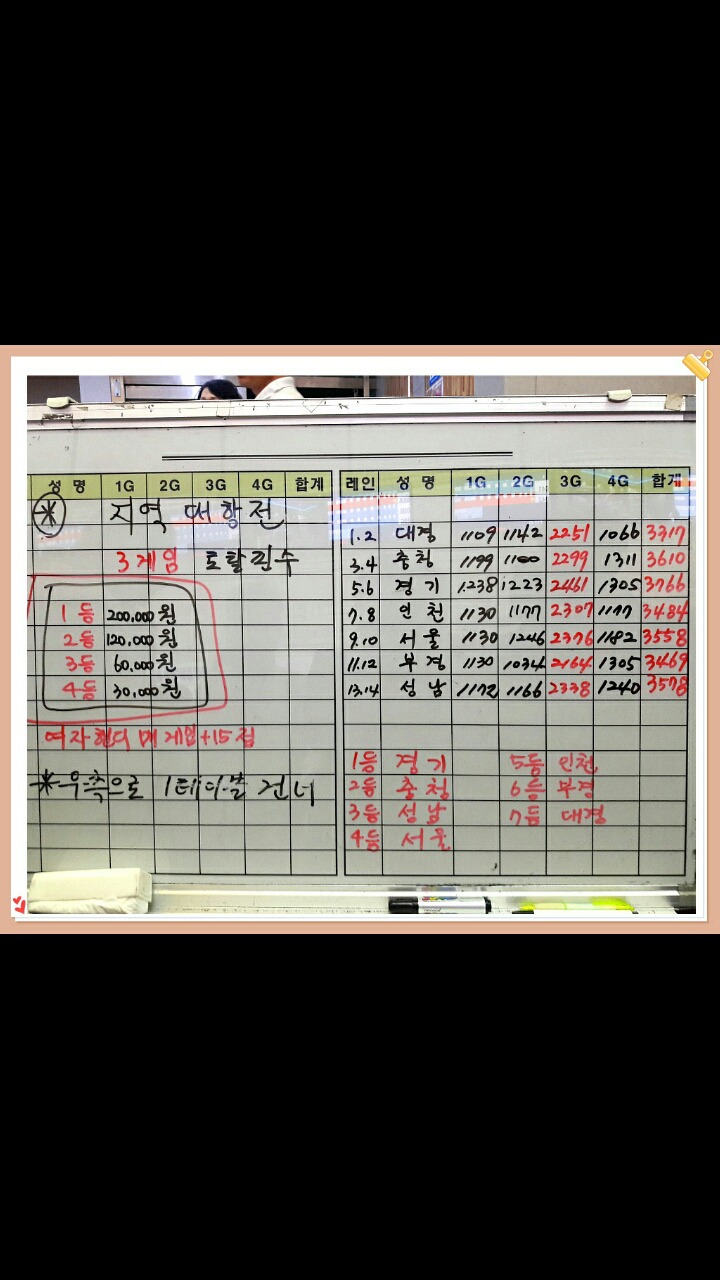 성 명 1G 2G 3G 4G 합계
* 지역 대항전
3게임 토탈핀수
1등 200,000원
2등 120,000원
3등 60,000원
4등 30,000원
여자핸디 매게임+15점
*우측으로 1테이블 건너
레인 성 명 1G 2G 3G 4G 합계
1.2 대경 1109 1142 2251 1066 3317
3.4 충청 1199 1100 2299 1311 3610
5.6 경기 1238 1223 2461 1305 3766
7.8 인천 1130 1177 2307 1177 3484
9.10 서울 1130 1246 2376 1182 3558
11.12 부경 1130 1034 2164 1305 3469
13.14 성남 1172 1166 2338 1240 3578
1등 경기 5등 인천
2등 충청 6등 부경
3등 성남 7등 대경
4등 서울